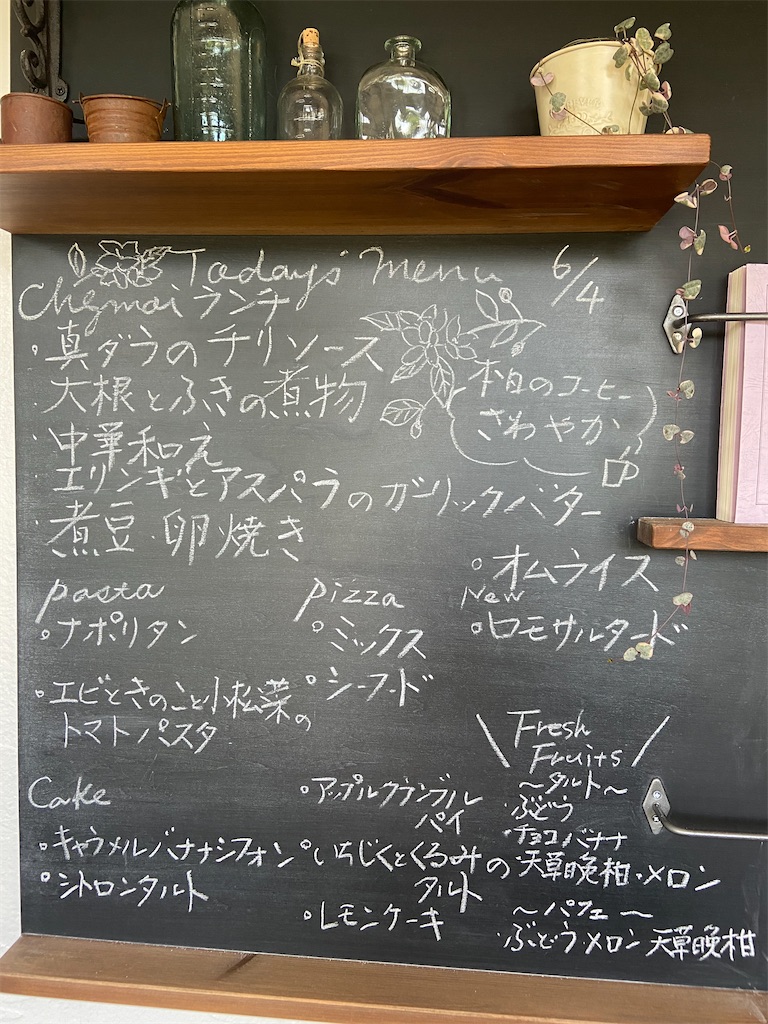 Today's Menu 6/4
Chamai ランチ
・真ダラのチリソース
・大根とふきの煮物
・中華和え
・エリンギとアスパラのガーリックバター
・煮豆・卵焼き
本日のコーヒー
さわやか
。オムライス
New
。ロモサルタード
pasta
・ナポリタン
・エビときのこと小松菜の
トマトパスタ
pizza
。ミックス
。シーフード
Cake
・キャラメルバナナシフォン
。シトロンタルト
。アップルクランブル
パイ
。いちじくとくるみの
タルト
・レモンケーキ
\ Fresh
Fruits /
〜タルト〜
・ぶどう
・チョコバナナ
・天草晩柑・メロン
〜パフェ〜
・ぶどう・メロン 天草晩柑